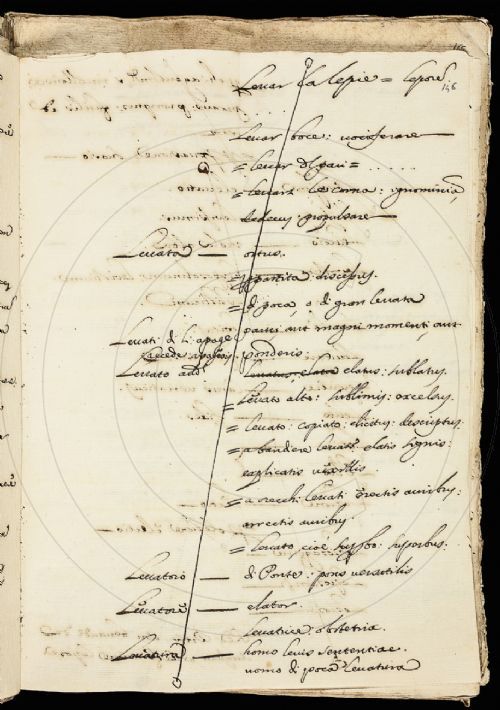 146
Levar la lepre = lepore
Levar boce: vociferare
= levar
= levarsi le corna: ignominia,
dedecus propulsare
Levata — ortus.
= partita: discessus.
= di poca, o di gran levata
parvi aut magni momenti, aut
Levati di lì: apage ponderis:
recede
Levato add. elatus: sublatus
= Levato alto: sublimis: excelsus
= levato: copiato: descriptus
= a bandere levate: elatis signis:
explicatis vexillis
= a orecchi levati: erectis auribus:
arrectis auribus
= Levato, cioè superbo: superbus:
Levatoio — di Ponte: pons versatilis
Levatore — elator.
Levatrice obstetrix.
Levatura — homo levis sententiae
uomo di poca levatura